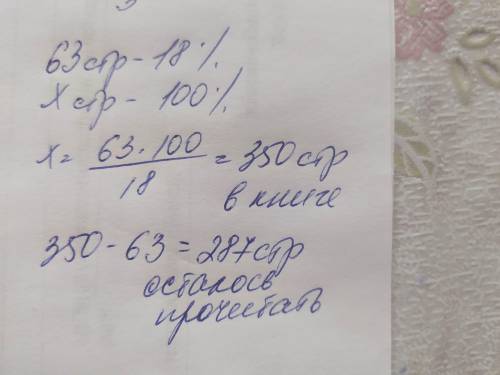 63стр - 18%
Х стр - 100%
х = 63 · 100 / 18 = 350 стр
в книге
350 - 63 = 287 стр
осталось
прочитать